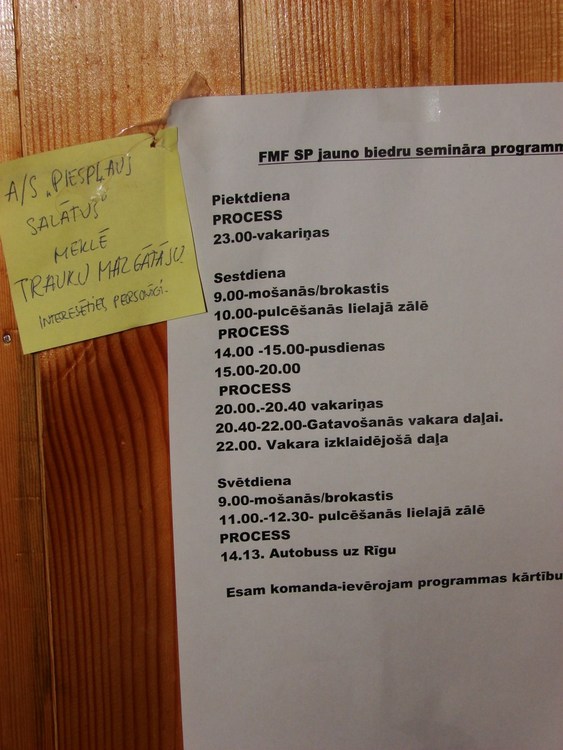 A/S „PIESPĻAUJ
SALĀTUS“
MEKLĒ
TRAUKU MAZGĀTĀJU
INTERESĒTIES PERSONĪGI.
FMF SP jauno biedru semināra programm
Piektdiena
PROCESS
23.00-vakariņas
Sestdiena
9.00-mošanās/brokastis
10.00-pulcēšanās lielajā zālē
PROCESS
14.00 -15.00-pusdienas
15.00-20.00
PROCESS
20.00.-20.40 vakariņas
20.40-22.00-Gatavošanās vakara daļai.
22.00. Vakara izklaidējošā daļa
Svētdiena
9.00-mošanās/brokastis
11.00.-12.30- pulcēšanās lielajā zālē
PROCESS
14.13. Autobuss uz Rīgu
Esam komanda-ievērojam programmas kārtību